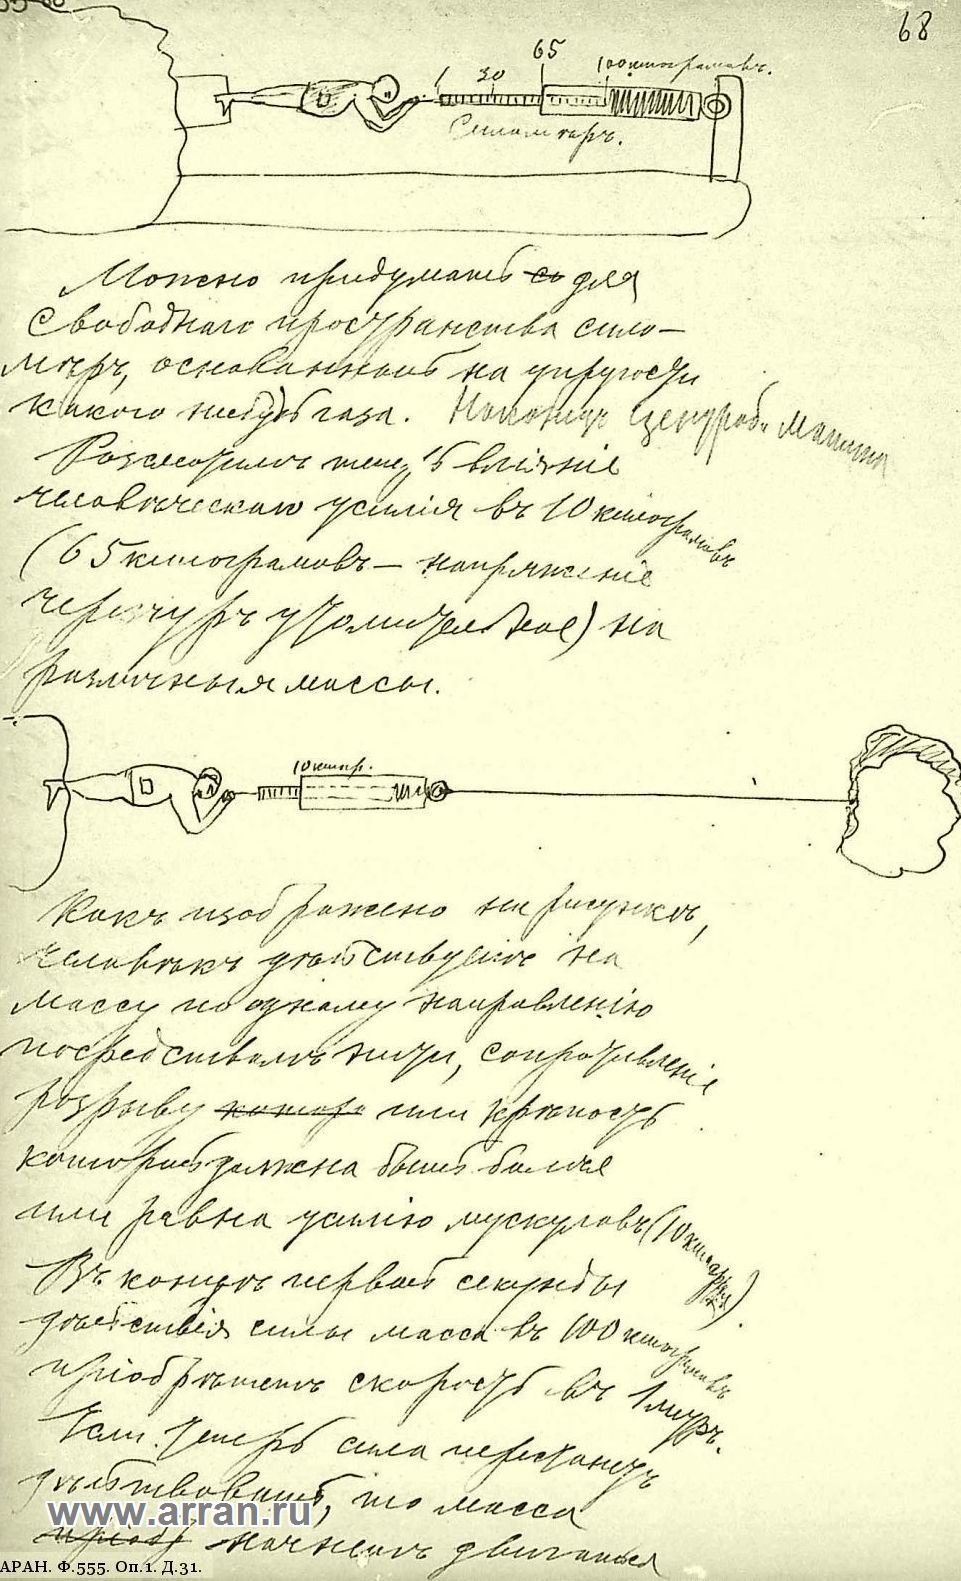 68
65
1 30 100 килограмовъ.
Силомѣръ.
Можно придумать съ для
свободнаго пространства сило-
мѣръ, основанный на упругости
какого нибудь газа. Наконецъ центроб. машина
Разсмотримъ теперь вліяніе
человѣческаго усилія въ 10 килограмовъ
(65 килограмовъ — напряженіе
черезчуръ утомительное) на
различныя массы.
10 килогр.
Какъ изображено на рисункѣ,
человѣкъ дѣйствуетъ на
массу по одному направленію
посредствомъ нити, сопротивленіе
разрыву которо или крѣпость
которой должна быть болѣе
или равна усилію мускуловъ (10 килограм.)
Въ концѣ первой секунды
дѣйствія силы масса въ 100 килограмовъ
пріобрѣтетъ скорость въ 1 метръ.
Если теперь сила перестанетъ
дѣйствовать, то масса
пріоб начнетъ двигаться
www.arran.ru
АРАН. Ф.555. Оп.1. Д.31.